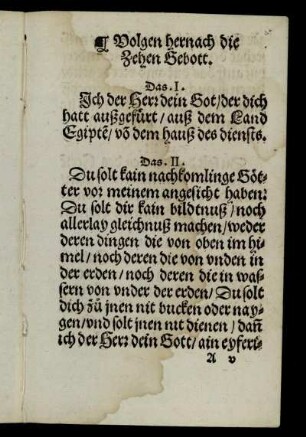 ¶ Volgen hernach die
Zehen Gebott.
Das .I.
Jch der Herꝛ dein Got/der dich
hatt außgefürt/auß dem Land
Egiptē/võ dem hauß des diensts.
Das .II.
Du solt kain nachkomlinge Göt-
ter voꝛ meinem angesicht haben:
Du solt dir kain bildtnuß/noch
allerlay gleichnuß machen/weder
deren dingen die von oben im hi-
mel/noch deren die von vnden in
der erden/noch deren die in was-
sern von vnder der erden/Du solt
dich zů jnen nit bucken oder nay-
gen/vnd solt jnen nit dienen/dañ
ich der Herꝛ dein Gott/ain eyferi-
A v